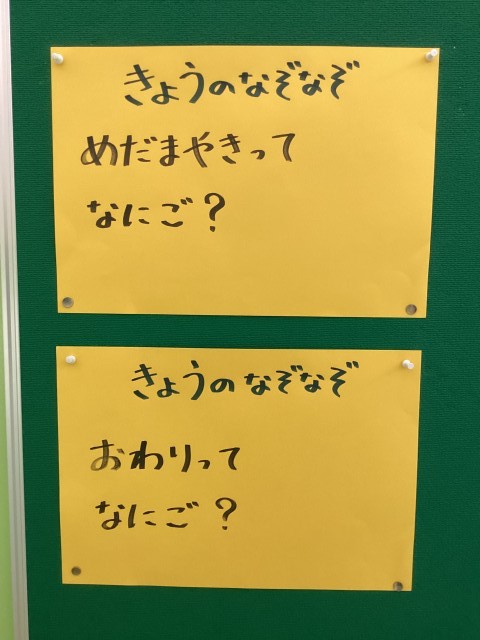 きょうのなぞなぞ
めだまやきって
なにご？
きょうのなぞなぞ
おわりって
なにご？